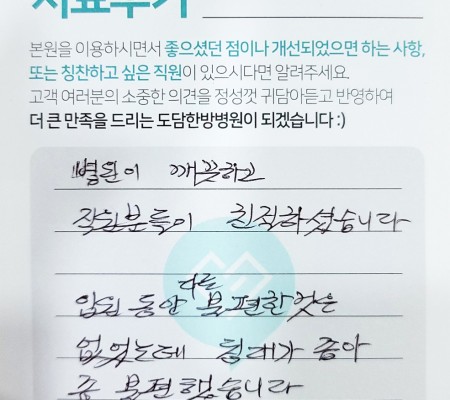 치료후기
본원을 이용하시면서 좋으셨던 점이나 개선되었으면 하는 사항,
또는 칭찬하고 싶은 직원이 있으시다면 알려주세요.
고객 여러분의 소중한 의견을 정성껏 귀담아듣고 반영하여
더 큰 만족을 드리는 도담한방병원이 되겠습니다 :)
병원이 깨끗하고
직원분들이 친절하셨습니다
입원 동안 다른 불편한 것은
없었는데 침대가 좁아
좀 불편했습니다